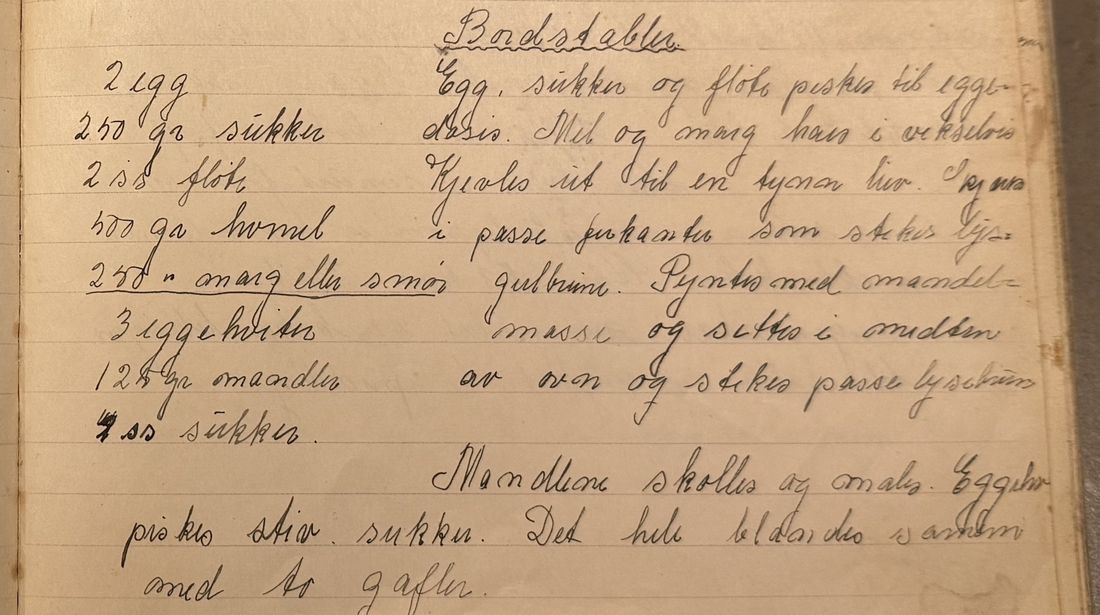 Bordstabler
2 egg
250 gr sukker
2 ss fløte
500 gr hvmel
250 " marg eller smør
3 eggehviter
125 gr mandler
4 ss sukker.
Egg, sukker og fløte peskes til egge-
dosis. Mel og marg haes i vekselvis
Kjevles ut til en tynn leiv. Skjæres
i passe firkanter som stekes lys=
gulbrune. Pyntes med mandel=
masse og settes i midten
av ovn og stekes passe lysebrun
Mandlene skolles og males. Eggehv
piskes stiv. sukker. Det hele blandes sammen
med to gafler.